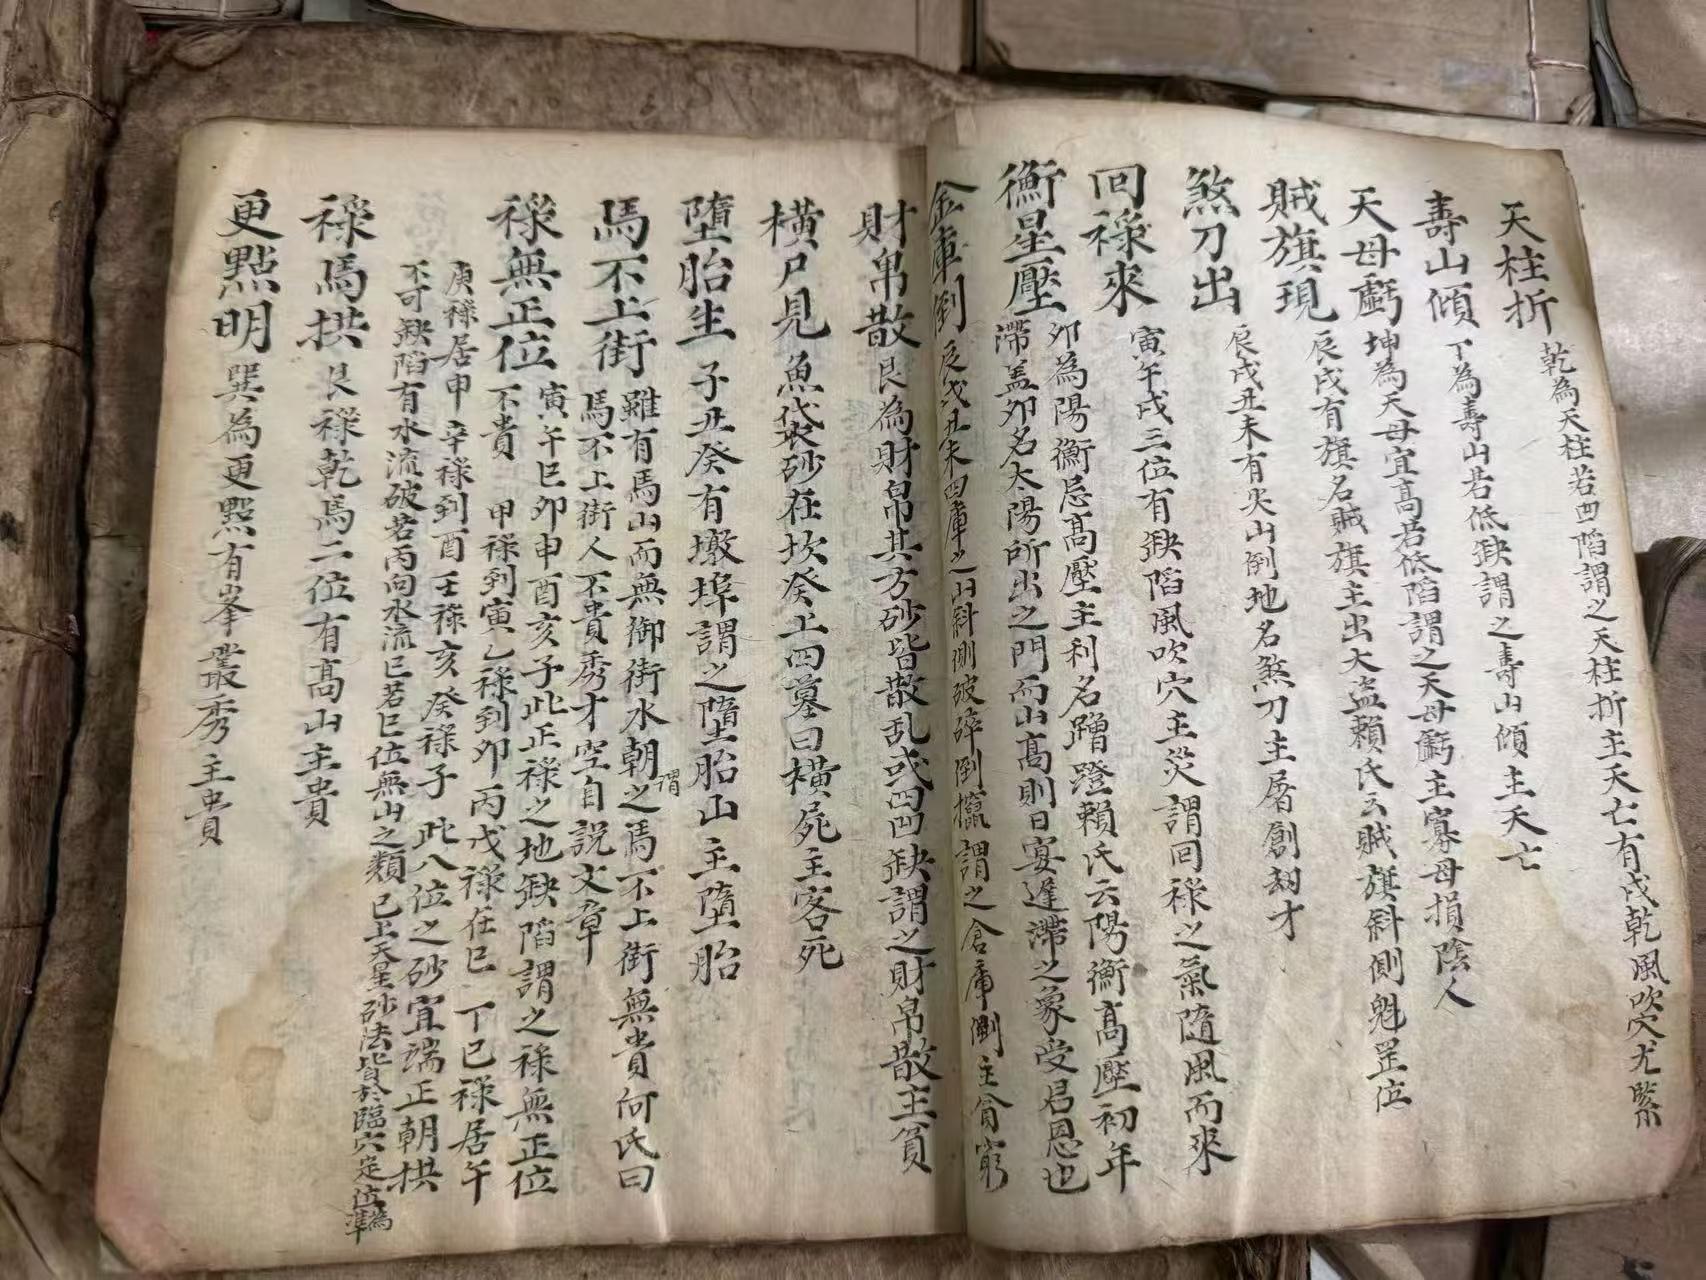 天柱折 乾為天柱若凹陷謂之天柱折主夭亡有戌乾風吹穴尤緊
壽山傾 丁為壽山若低缺謂之壽山傾主夭亡
天母虧 坤為天母宜高若低陷謂之天母虧主寡母損陰人
賊旗現 辰戌有旗名賊旗主出大盜賴氏云賊旗斜側魁罡位
煞刀出 辰戌丑未有尖山倒地名煞刀主屠創刼才
回祿來 寅午戌三位有缺陷風吹穴主災謂回祿之氣隨風而來
衡星壓 卯為陽衡忌高壓主利名蹭蹬賴氏云陽衡高壓初年
滯盖卯名太陽所出之門而山高則日宴遲滯之象受君恩也
金庫倒 辰戌丑未四庫之山斜側破碎倒攧謂之倉庫倒主貧窮
財帛散 艮為財帛其方砂皆散乱或凹凹缺謂之財帛散主貧
橫尸見 魚袋砂在坎癸上四墓曰橫屍主客死
墮胎生 子丑癸有墩埠謂之墮胎山主墮胎
馬不上街 雖有馬山而無御街水朝謂之馬不上街無貴何氏曰
馬不上街人不貴秀才空自説文章
祿無正位 寅午巳卯申酉亥子此正祿之地缺陷謂之祿無正位
不貴 甲祿到寅乙祿到卯丙戊祿在巳丁己祿居午
庚祿居申辛祿到酉壬祿亥癸祿子此八位之砂宜端正朝拱
不可缺陷有水流破若丙向水流巳若巳位無山之類 已上天星砂法皆於臨穴定位為準
祿馬拱 艮祿乾馬二位有高山主貴
更點明 巽為更點有峯叢秀主貴